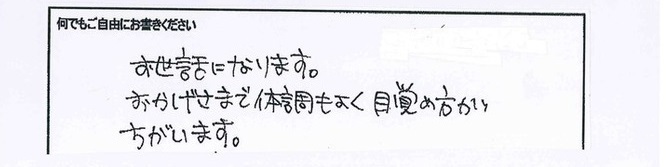 何でもご自由にお書きください
お世話になります。
おかげさまで体調もよく目覚め方が
ちがいます。